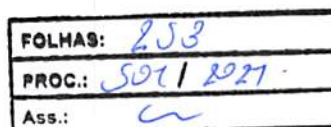 FOLHAS: 253
PROC.: 501 / 2021.
Ass.: